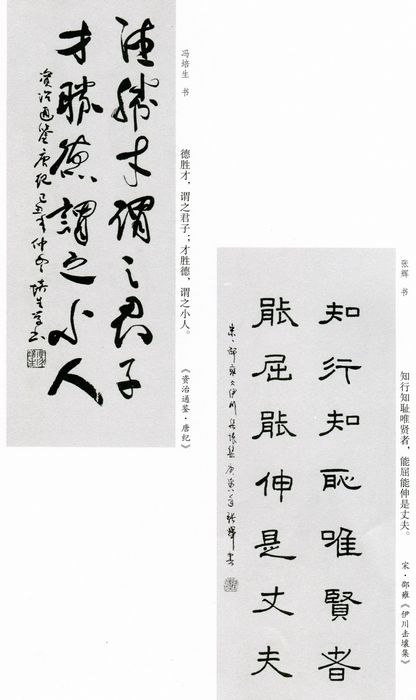 德勝才謂之君子
才勝德謂之小人
資治通鉴唐纪己丑年仲冬培生書
冯培生 书
德胜才,谓之君子;才胜德,谓之小人。 《资治通鉴·唐纪》
知行知恥唯賢者
能屈能伸是丈夫
宋邵雍
张辉 书
知行知耻唯贤者,能屈能伸是丈夫。 宋·邵雍《伊川击壤集》